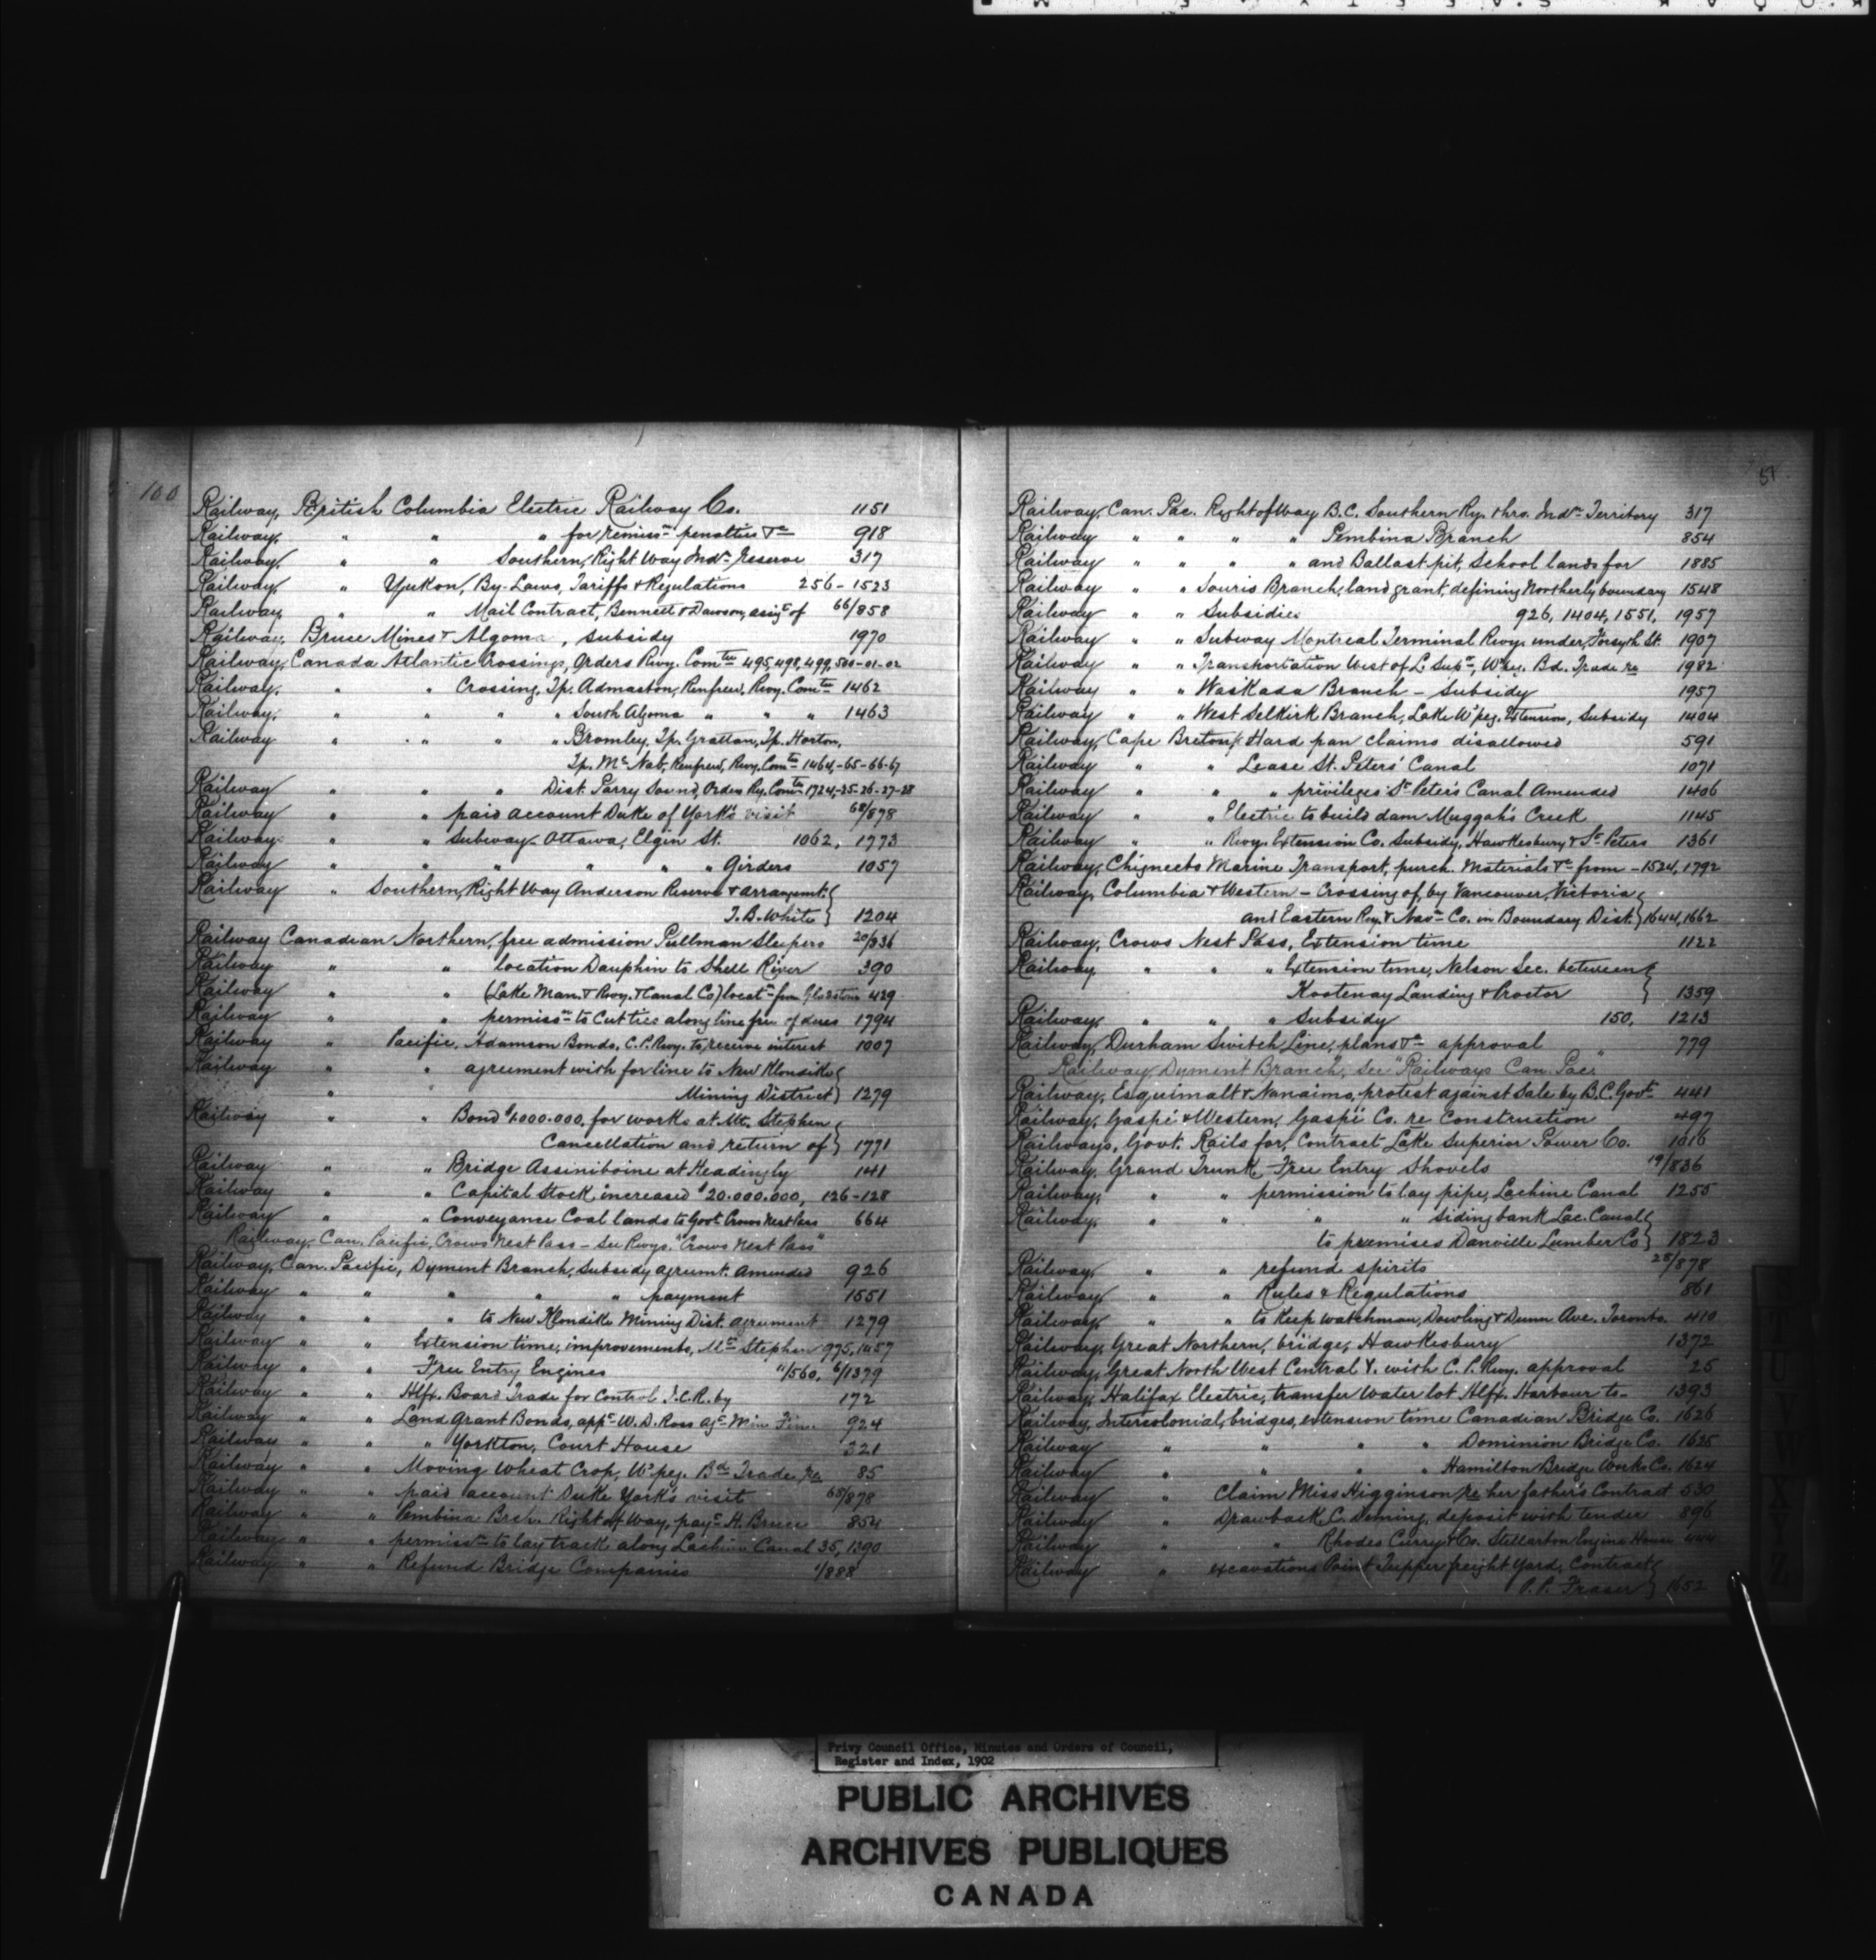 100
Railway, British Columbia Electric Railway Co. 1151
Railway, " " " for remiss<sup>n</sup> penalties &c 918
Railway, " " Southern, Right Way Ind<sup>n</sup> Reserve 317
Railway, " Yukon, By-Laws, Tariffs & Regulations 256-1523
Railway, " " Mail Contract, Bennett & Dawson, asig<sup>t</sup> of 66/858
Railway, Bruce Mines & Algoma, subsidy 1970
Railway, Canada Atlantic Crossings, Orders Rwy. Com<sup>tee</sup> 495, 498, 499, 500-01-02
Railway, " " Crossing, Tp. Admaston, Renfrew, Rwy. Com<sup>tee</sup> 1462
Railway, " " " " South Algoma " " " 1463
Railway " " " " Bromley, Tp. Grattan, Tp. Horton,
Tp. McNab, Renfrew, Rwy. Com<sup>tee</sup> 1464,-65-66-67
Railway " " " Dist. Parry Sound, Orders Ry. Com<sup>tee</sup> 1724,-25-26-27-28
Railway " " paid account Duke of York's visit 68/878
Railway " " Subway Ottawa, Elgin St. 1062, 1773
Railway " " " " " Girders 1057
Railway " Southern, Right Way Anderson Reserve & arrangemt.
J.B. White 1204
Railway Canadian Northern, free admission Pullman Sleepers 20/836
Railway " " location Dauphin to Shell River 390
Railway " " (Lake Man. & Rwy. & Canal Co) locat<sup>n</sup> from Gladstone 429
Railway " " permiss<sup>n</sup> to Cut ties along line free of dues 1794
Railway " Pacific, Adamson Bonds, C.P. Rwy. to receive interest 1007
Railway " " agreement with for line to New Klondike
" Mining District 1279
Railway " " Bond $1000.000, for works at Mt. Stephen
Cancellation and return of 1771
Railway " " Bridge Assiniboine at Headingly 141
Railway " " Capital Stock increased $20.000.000, 126-128
Railway " " Conveyance Coal lands to Govt Crows Nest Pass 664
Railway, Can. Pacific, Crows Nest Pass - See Rwys. "Crows Nest Pass"
Railway, Can. Pacific, Dyment Branch, Subsidy agreemt. Amended 926
Railway " " " " " payment 1551
Railway " " " to New Klondike Mining Dist. agreement 1279
Railway " " Extension time, improvements, Mt Stephen 975, 1457
Railway " " Free Entry Engines 11/560, 6/1379
Railway " " Hlfx. Board Trade for Control I.C.R. by 172
Railway " " Land Grant Bonds, app<sup>t</sup> W.D. Ross ag<sup>t</sup> Min Fin. 924
Railway " " " Yorkton, Court House 321
Railway " " Moving Wheat Crop, W'peg. B<sup>d</sup> Trade re 85
Railway " " paid account Duke York's visit 68/878
Railway " " Pembina Brch. Right of Way, pay<sup>t</sup> H. Bruce 854
Railway " " permiss<sup>n</sup> to lay track along Lachine Canal 35, 1390
Railway " " Refund Bridge Companies 1/888
51
Railway, Can. Pac. Right of Way B.C. Southern Ry. thro. Ind<sup>n</sup> Territory 317
Railway " " " " Pembina Branch 854
Railway " " " " and Ballast pit, School lands for 1885
Railway " " Souris Branch, land grant, defining Northerly boundary 1548
Railway " " Subsidies 926, 1404, 1551, 1957
Railway " " Subway Montreal Terminal Rwy. under Forsyth St. 1907
Railway " " Transportation West of L. Sup<sup>r</sup>, W'peg. Bd. Trade re 1982
Railway " " Waskada Branch - Subsidy 1957
Railway " " West Selkirk Branch, Lake W'peg. Extension, Subsidy 1404
Railway, Cape Breton, Hard pan claims disallowed 591
Railway " " Lease St. Peters' Canal 1071
Railway " " " privileges St Peters Canal Amended 1406
Railway " " Electric to build dam Muggah's Creek 1145
Railway " " Rwy. Extension Co. Subsidy, Hawkesbury & St Peters 1361
Railway, Chignecto Marine Transport, purch. Materials &c from - 1524, 1792
Railway, Columbia & Western - Crossing of, by Vancouver, Victoria
and Eastern Ry. & Nav<sup>n</sup> Co. in Boundary Dist. 1644, 1662
Railway, Crows Nest Pass, Extension time 1122
Railway, " " " Extension time, Nelson Sec. between
Kootenay Landing & Proctor 1359
Railway, " " " Subsidy 150, 1213
Railway, Durham Switch Line, plans &c approval 779
Railway, Dyment Branch, see "Railways Can. Pac."
Railway, Esquimalt & Nanaimo, protest against Sale by B.C. Govt 441
Railway, Gaspé & Western, Gaspé Co. re Construction 497
Railways, Govt. Rails for, Contract Lake Superior Power Co. 1016
Railway, Grand Trunk, Free Entry Shovels 19/836
Railway, " " permission to lay pipe, Lachine Canal 1255
Railway, " " " " siding bank Lac. Canal
to premises Danville Lumber Co 1823
Railway, " " refund spirits 28/878
Railway, " " Rules & Regulations 861
Railway, " " to Keep watchman, Dowling & Dunn Ave. Toronto. 410
Railway, Great Northern, bridge, Hawkesbury 1372
Railway, Great North West Central &. with C.P. Rwy. approval 25
Railway, Halifax Electric, transfer Water lot Hlfx. Harbour to- 1393
Railway, Intercolonial, bridges, extension time Canadian Bridge Co. 1626
Railway " " " " Dominion Bridge Co. 1625
Railway " " " " Hamilton Bridge Works Co. 1624
Railway " Claim Miss Higginson re her father's Contract 530
Railway " Drawback, C. Deming, deposit with tender 896
Railway " " Rhodes Curry & Co. Stellarton Engine House 444
Railway " excavations Point Tupper freight yard, Contract
P.P. Fraser 1652
Privy Council Office, Minutes and Orders of Council,
Register and Index, 1902
PUBLIC ARCHIVES
ARCHIVES PUBLIQUES
CANADA